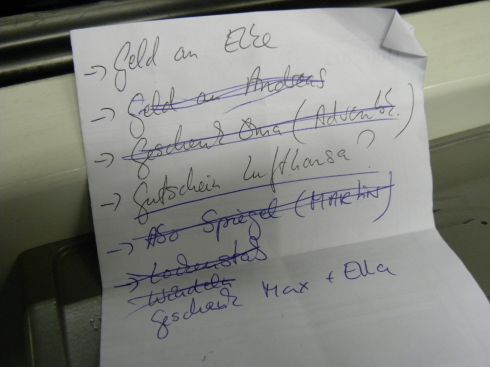 → Geld an Elke
→ Geld an Andreas
→ Geschenk Oma (Advents.)
→ Gutschein Lufthansa?
→ Abo Spiegel (MARTIN)
→ Lockenstab
Windeln
Geschenk Max + Ella